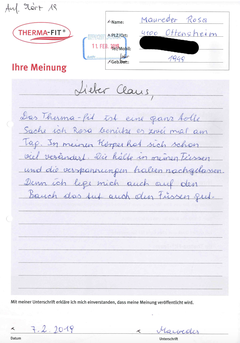 Auf Hört 19
THERMA-FIT®
Name: Maureder Rosa
PLZ/Ort: 4100 Ottensheim
11. FEB. 2019
Geboren: 1948
Ihre Meinung
Lieber Claus,
Das Therma-fit ist eine ganz tolle
Sache ich Rosa benütze es zwei mal am
Tag. In meinen Körper hat sich schon
viel verändert. Die kälte in meinen Füssen
und die verspannungen haben nachgelassen.
Dann ich lege mich auch auf den
Bauch das tut auch den Füssen gut.
Mit meiner Unterschrift erkläre ich mich einverstanden, dass meine Meinung veröffentlicht wird.
7.2.2019
Maureder
Datum
Unterschrift